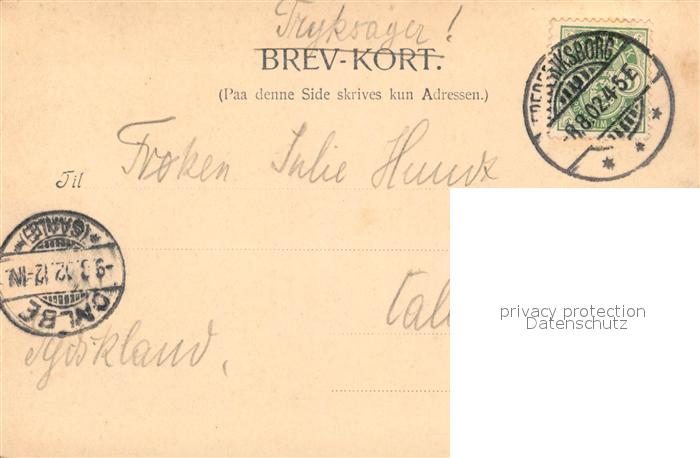 Tryksager!
BREV-KORT.
(Paa denne Side skrives kun Adressen.)
FREDERIKSBORG
8.8.02.4-5E
Til Frøken Julie Hundt
CALBE
*(SAALE)*
12-1N.
Tyskland,
privacy protection
Datenschutz